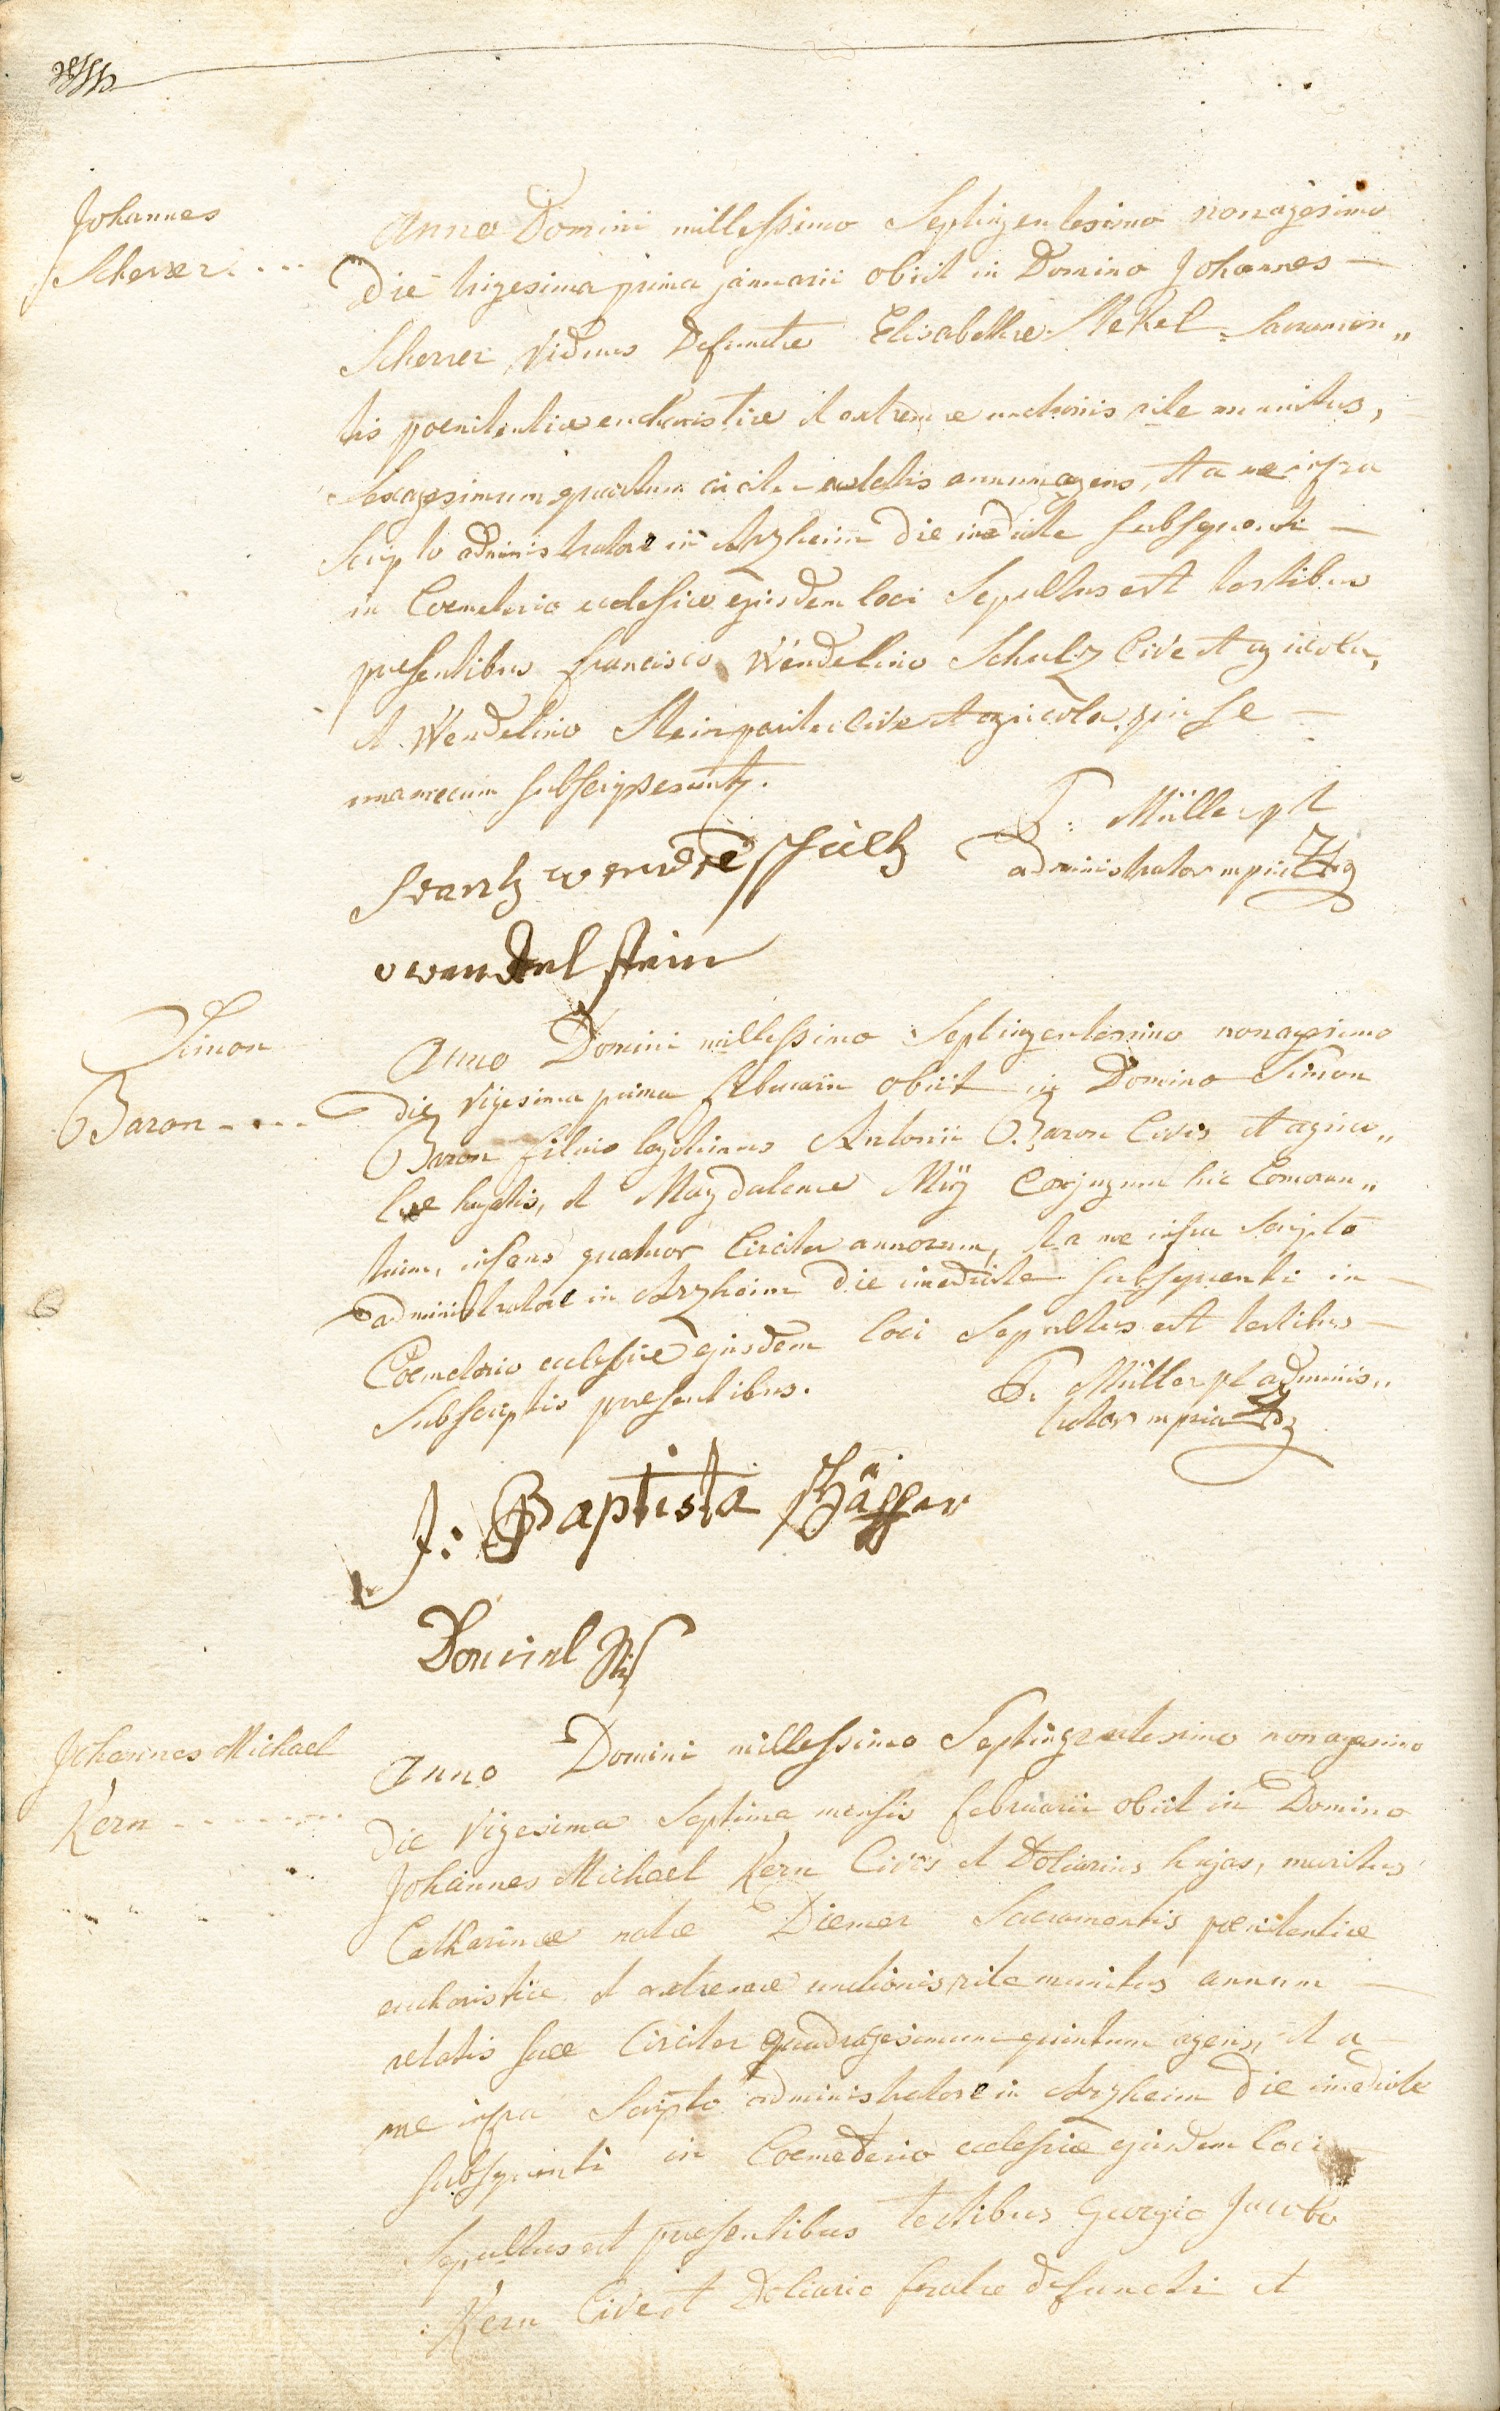 Johannes
Scherrer . . .
Anno Domini millessimo Septingentesimo nonagesimo
Die trigesima prima januarii obiit in Domino Johannes —
Scherrer Viduus Defunctæ Elisabethæ Stekel Sacramen„
tis poenitentiæ eucharistiæ et extremæ unctionis rite munitus,
Sexagesimum quartum circiter ætatis annum agens, et a me infra
Scripto administratore in Arzheim Die imediate subsequenti —
in Coemeterio ecclesiæ ejusdem loci Sepultus est testibus
præsentibus francisco Wendelino Schulz Cive et agricola,
et Wendelino Stein pariter Cive et agricola, qui se —
una mecum subscripserunt.
P: Müller pt
administrator mpria
Frantz wendel Schultz
wendel stein
Simon
Baron - . . .
Anno Domini millessimo Septingentesimo nonagesimo
die vigesima prima februarii obiit in Domino Simon
Baron filius legitimus Antonii Baron Civis et agrico„
læ hujatis, et Magdalenæ Mÿ Conjugum hic Comoran„
tium, infans quatuor Circiter annorum, et a me infra Scripto
administratore in Arzheim die imediate subsequenti in —
Coemeterio ecclesiæ ejusdem loci Sepultus est testibus —
Subscriptis præsentibus.
P. Müller pt adminis„
trator mpria
J: Baptista
Daniel
Johannes Michael
Kern - - - - - -
Anno Domini millessimo Septingentesimo nonagesimo
die vigesima Septima mensis februarii obiit in Domino
Johannes Michael Kern Civis et Doliarius hujas, maritus
Catharinæ natæ Diemer Sacramentis poenitentiæ
eucharistiæ et extremæ unctionis rite munitus annum —
ætatis suæ Circiter quadragesimum quintum agens, et a —
me infra Scripto administratore in Arzheim die imediate
subsequenti in Coemeterio ecclesiæ ejusdem loci
Sepultus est præsentibus testibus georgio Jacobo
Kern Cive et Doliario fratre defuncti et